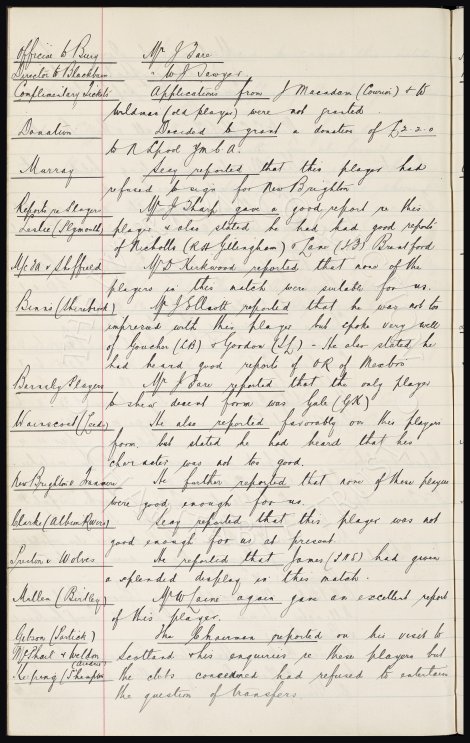 Officer to Bury Mr J Fare
Director to Blackburn " W J Sawyer
Complimentary Tickets Applications from J Macadam (Courier) & W
Wildman (old player) were not granted.
Donation Decided to grant a donation of £2-2-0
to N Lpool Y M C A.
Murray Secy reported that this player had
refused to sign for New Brighton
Reports re Players Mr J Sharp gave a good report re this
Leslie (Plymouth) player & also stated he had had good reports
of Nicholls (RH Gillingham) & Lane (IF) Brentford
Mc Ea v Sheffield Mr D Kirkwood reported that none of the
players in this match were suitable for us.
Binns (Shirebrook) Mr J Elliott reported that he was not too
impressed with this player but spoke very well
of Goucher (LB) & Gordon (IL) - He also stated he
had heard good reports of OR of Mexbro
Barnsley Players Mr J Fare reported that the only player
to shew decent form was Gale (GK)
Wainscoat (Leeds) He also reported favorably on this players
form, but stated he had heard that his
character was not too good.
New Brighton v Tranmere He further reported that none of these players
were good enough for us.
Clarke (Albion Rovers) Secy reported that this player was not
good enough for us at present
Preston v Wolves He reported that James (PNE) had given
a splendid display in this match.
Mullen (Birtley) Mr W Caine again gave an excellent report
of this player.
Gibson (Partick) The Chairman reported on his visit to
McPhail & Weldon (Airdrie) Scotland & his enquiries re these players but
the clubs concerned had refused to entertain
the question of transfers